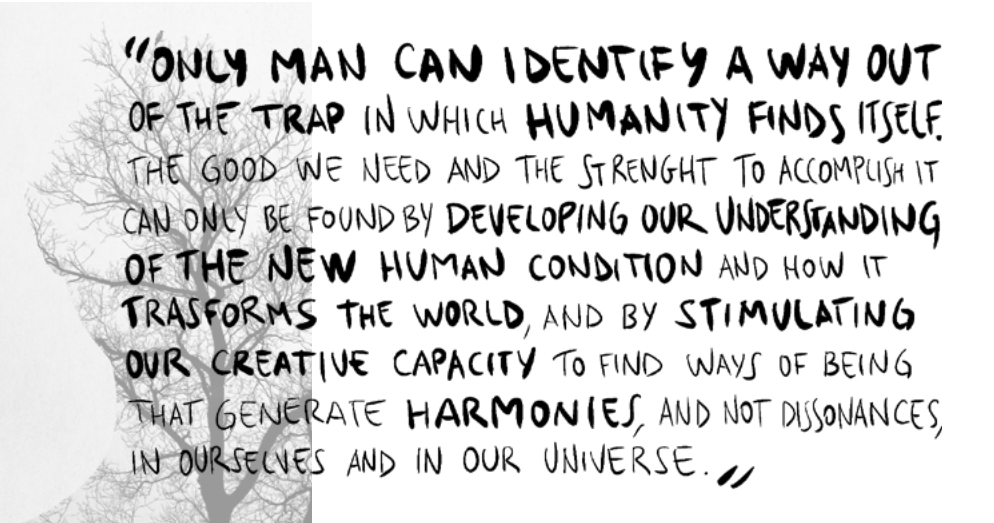 "ONLY MAN CAN IDENTIFY A WAY OUT
OF THE TRAP IN WHICH HUMANITY FINDS ITSELF.
THE GOOD WE NEED AND THE STRENGHT TO ACCOMPLISH IT
CAN ONLY BE FOUND BY DEVELOPING OUR UNDERSTANDING
OF THE NEW HUMAN CONDITION AND HOW IT
TRASFORMS THE WORLD, AND BY STIMULATING
OUR CREATIVE CAPACITY TO FIND WAYS OF BEING
THAT GENERATE HARMONIES, AND NOT DISSONANCES,
IN OURSELVES AND IN OUR UNIVERSE."